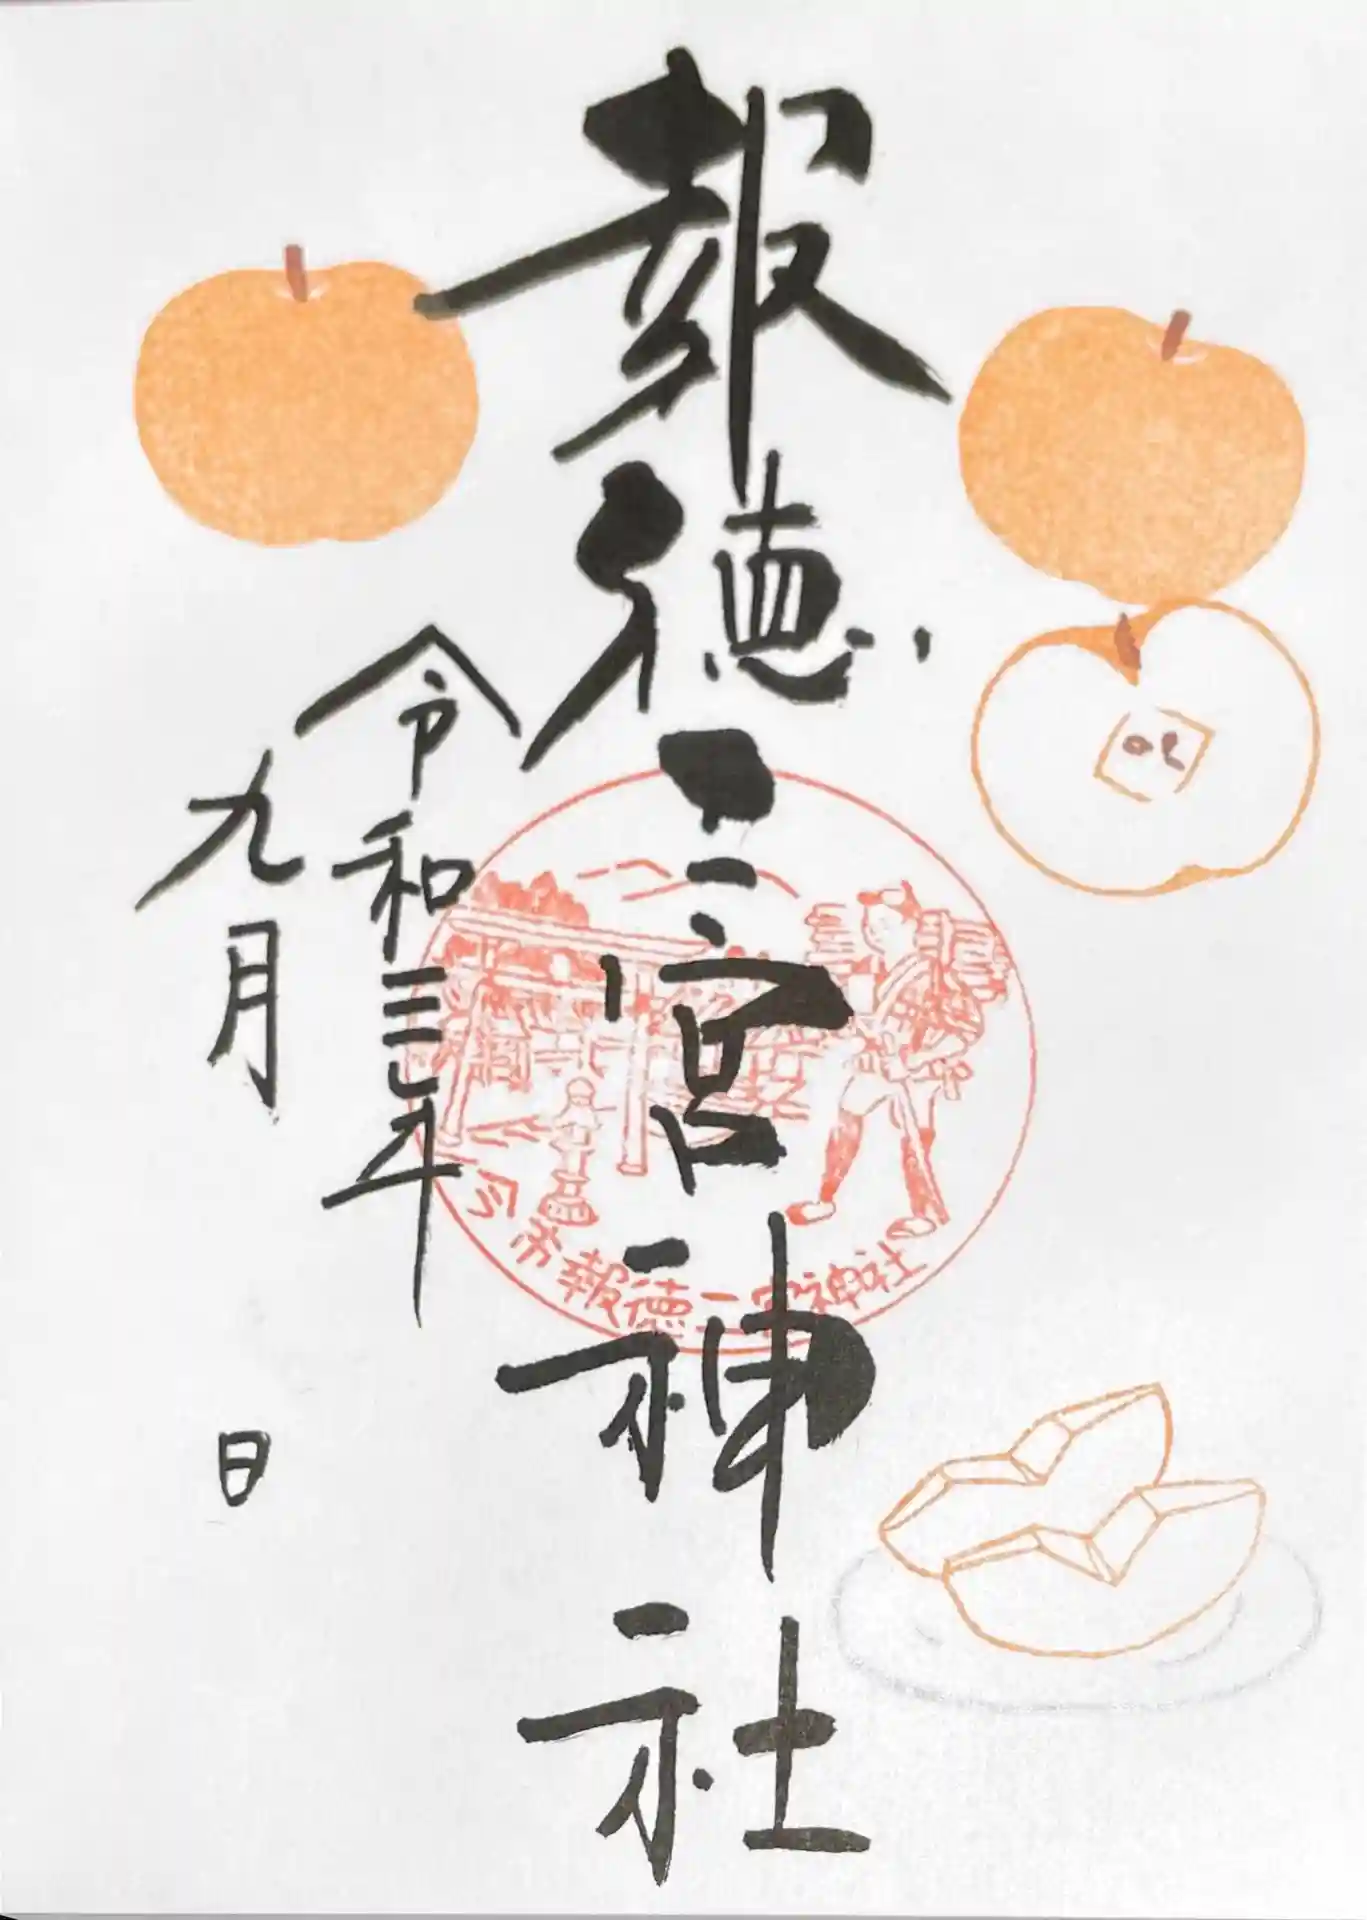 報徳二宮神社
令和三年
九月 日
今市報徳二宮神社